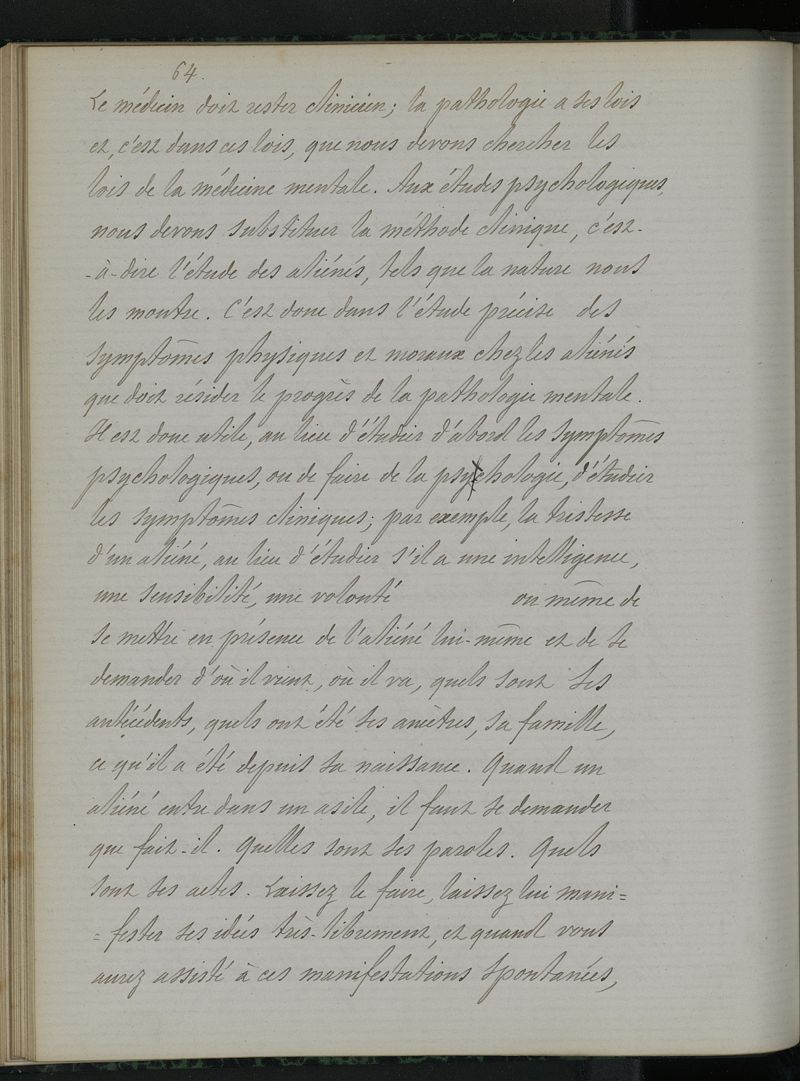 64.
Le médecin doit rester clinicien; la pathologie a ses lois
et, c'est dans ces lois, que nous devons chercher les
lois de la médecine mentale. Aux études psychologiques,
nous devons substituer la méthode clinique, c'est-
-à-dire l'étude des aliénés, tels que la nature nous
les montre. C'est donc dans l'étude précise des
symptômes physiques et moraux chez les aliénés
que doit résider le progrès de la pathologie mentale.
Il est donc utile, au lieu d'étudier d'abord les symptômes
psychologiques, ou de faire de la psychologie, d'étudier
les symptômes cliniques; par exemple, la tristesse
d'un aliéné, au lieu d'étudier s'il a une intelligence,
une sensibilité, une volonté ou même de
se mettre en présence de l'aliéné lui-même et de se
demander d'où il vient, où il va, quels sont ses
antécédents, quels ont été ses ancêtres, sa famille,
ce qu'il a été depuis sa naissance. Quand un
aliéné entre dans un asile, il faut se demander
que fait-il. Quelles sont ses paroles. Quels
sont ses actes. Laissez le faire, laissez lui mani=
=fester ses idées très-librement, et quand vous
aurez assisté à ces manifestations spontanées,